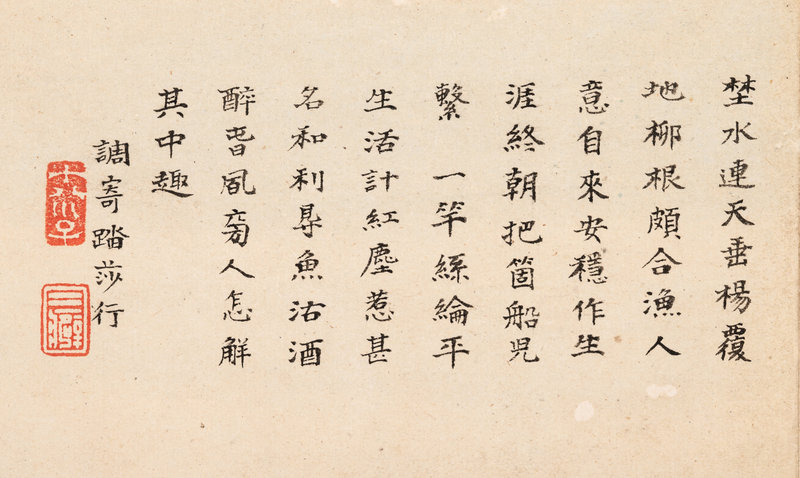 埜水連天垂楊覆
地柳根頗合漁人
意自來安穩作生
涯終朝把箇船児
繫 一竿絲綸平
生活計紅塵惹甚
名和利㝵魚沽酒
醉旹眠旁人怎觧
其中趣
調寄踏莎行